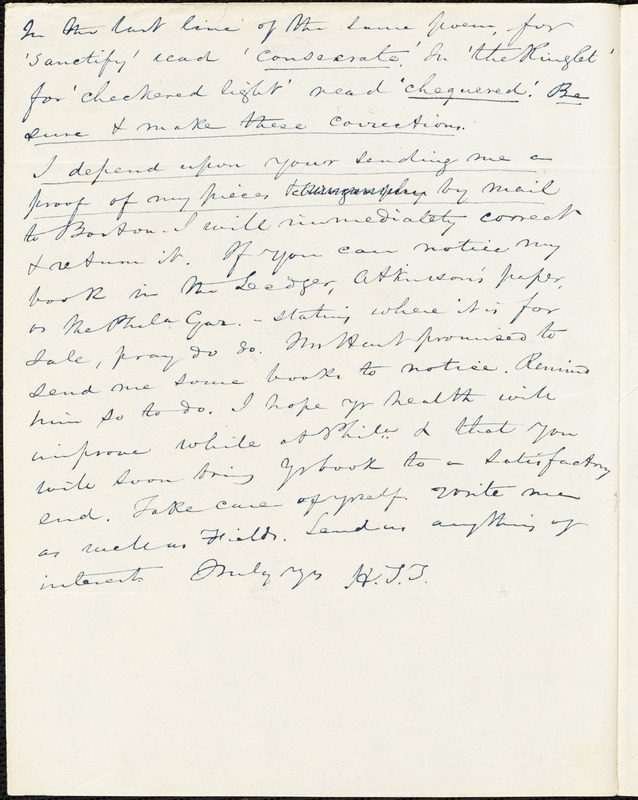 In the last line of the same poem, for
'sanctify' read 'consecrate.' In 'the Ringlet'
for 'checkered light' read 'chequered.' Be
sure & make these corrections.
I depend upon your sending me a
proof of my pieces by mail
to Boston. I will immediately correct
& return it. If you can notice my
book in the Ledger, Atkinson's paper,
or the Phila Gaz. – stating where it is for
sale, pray do so. Mr Hart promised to
send me some books to notice. Remind
him so to do. I hope yr health will
improve while at Phila. & that you
will soon bring yr book to a satisfactory
end. Take care of yrself. Write me
as well as Fields. Send us anything of
interest. Truly yrs H.T.T.